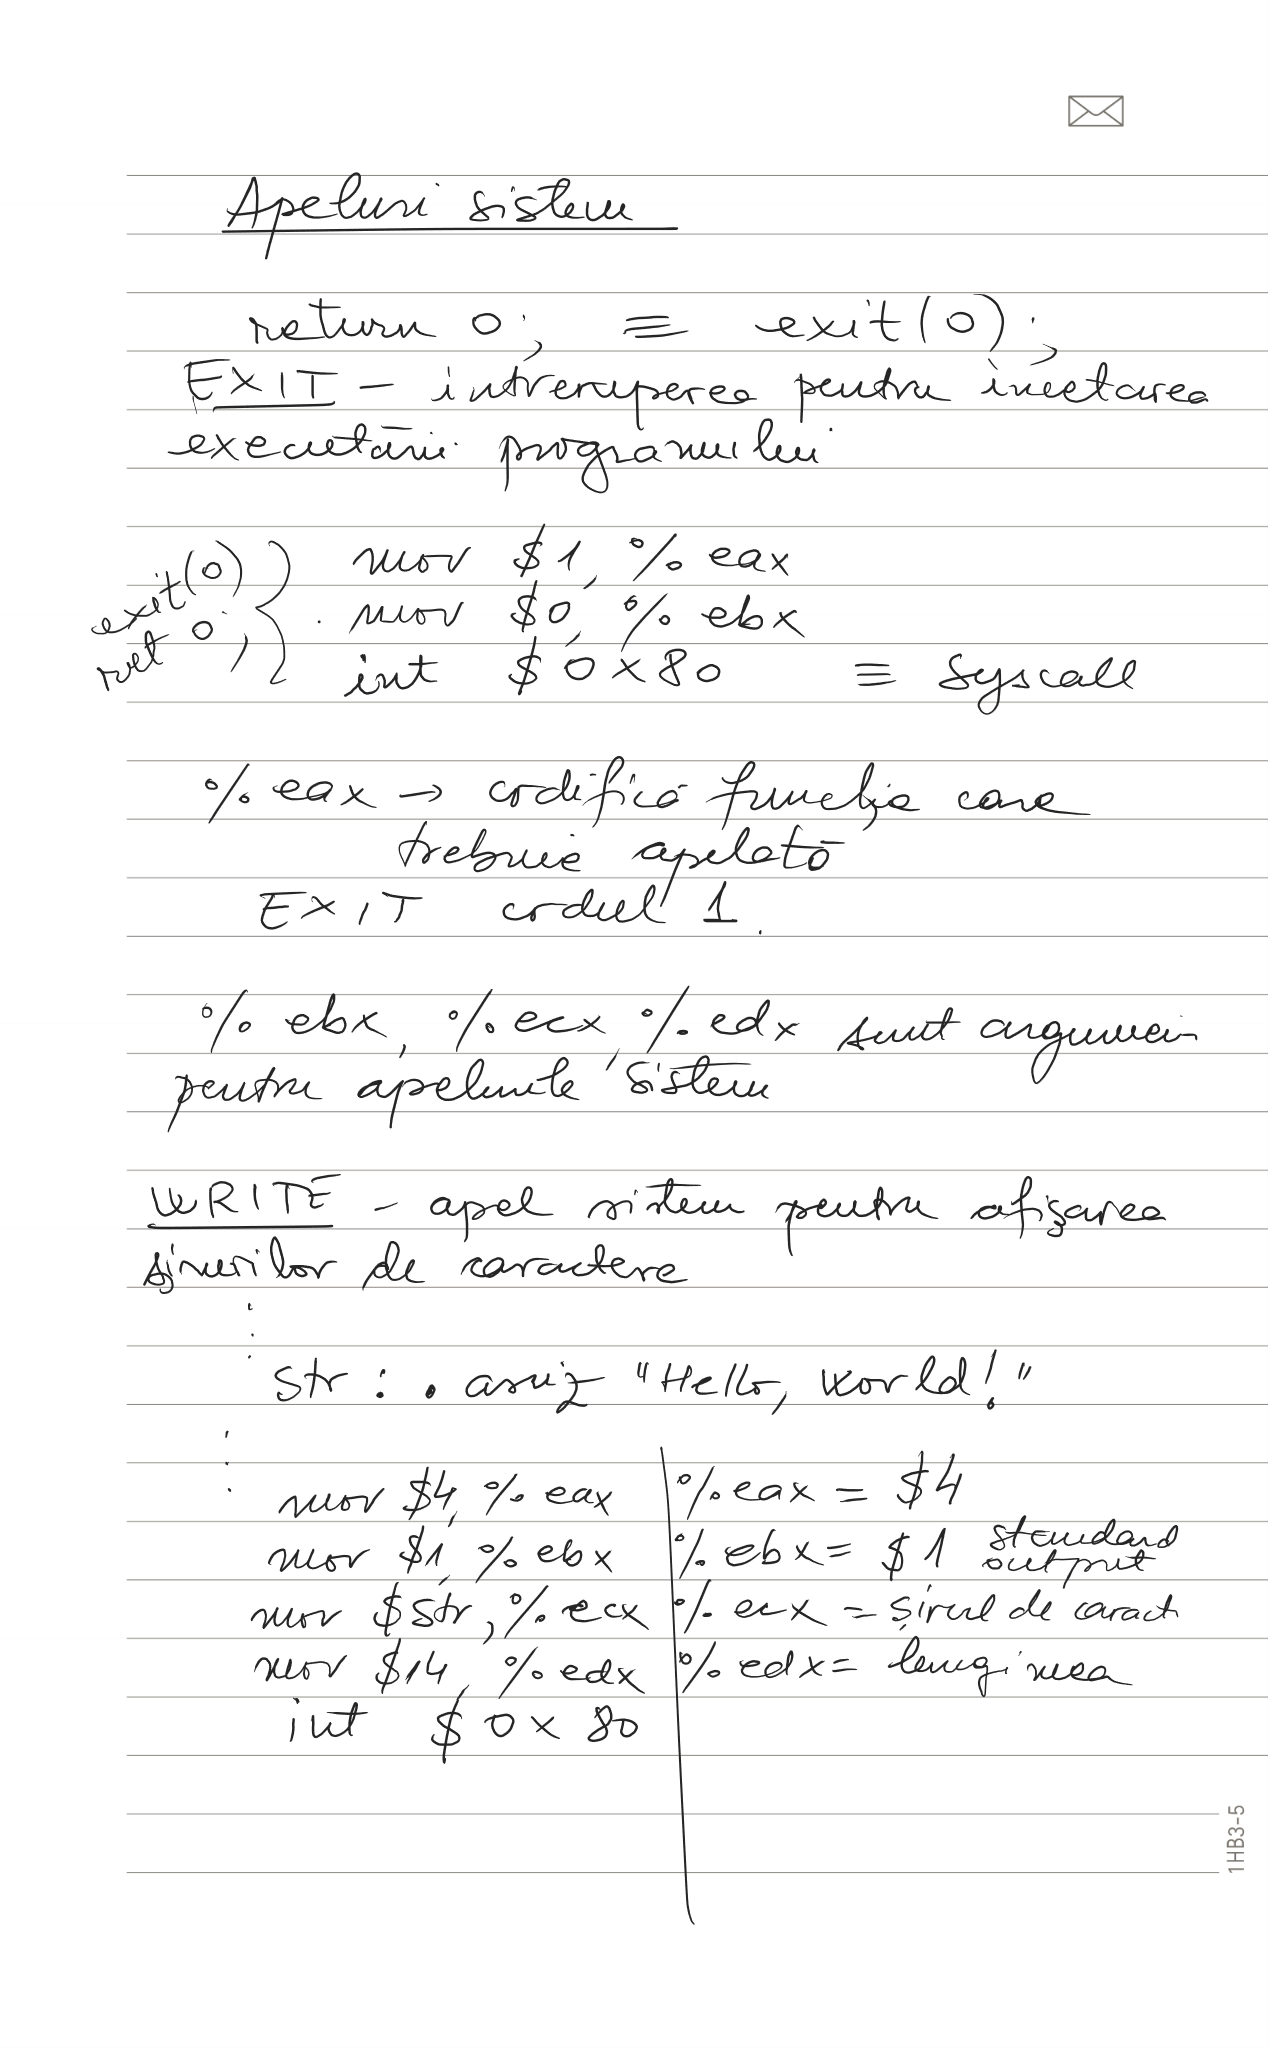 Apeluri sistem
return 0; ≡ exit(0);
EXIT – intreruperea pentru incetarea
executării programului
exit(0)
ret 0;
mov $1, %eax
mov $0, %ebx
int $0x80 ≡ Syscall
%eax → codifică funcția care
trebuie apelată
EXIT codul 1.
%ebx, %ecx, %edx sunt argumen
pentru apelurile sistem
WRITE – apel sistem pentru afișarea
șirurilor de caractere
str : .asciz "Hello, World!"
mov $4, %eax %eax = $4
mov $1, %ebx %ebx = $1 standard output
mov $str, %ecx %ecx = șirul de caract
mov $14, %edx %edx = lungimea
int $0x80
1HB3-5